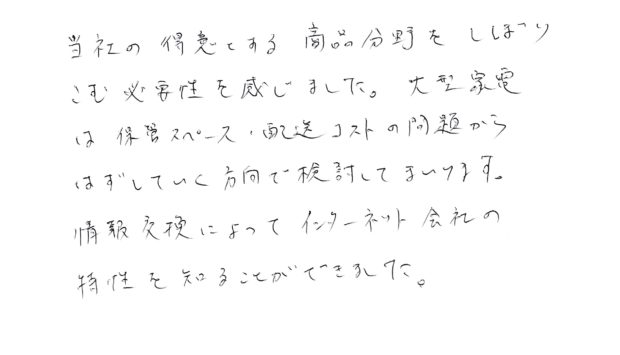 当社の得意とする商品分野をしぼり
こむ必要性を感じました。大型家電
は保管スペース・配送コストの問題から
はずしていく方向で検討してまいります。
情報交換によってインターネット会社の
特性を知ることができました。